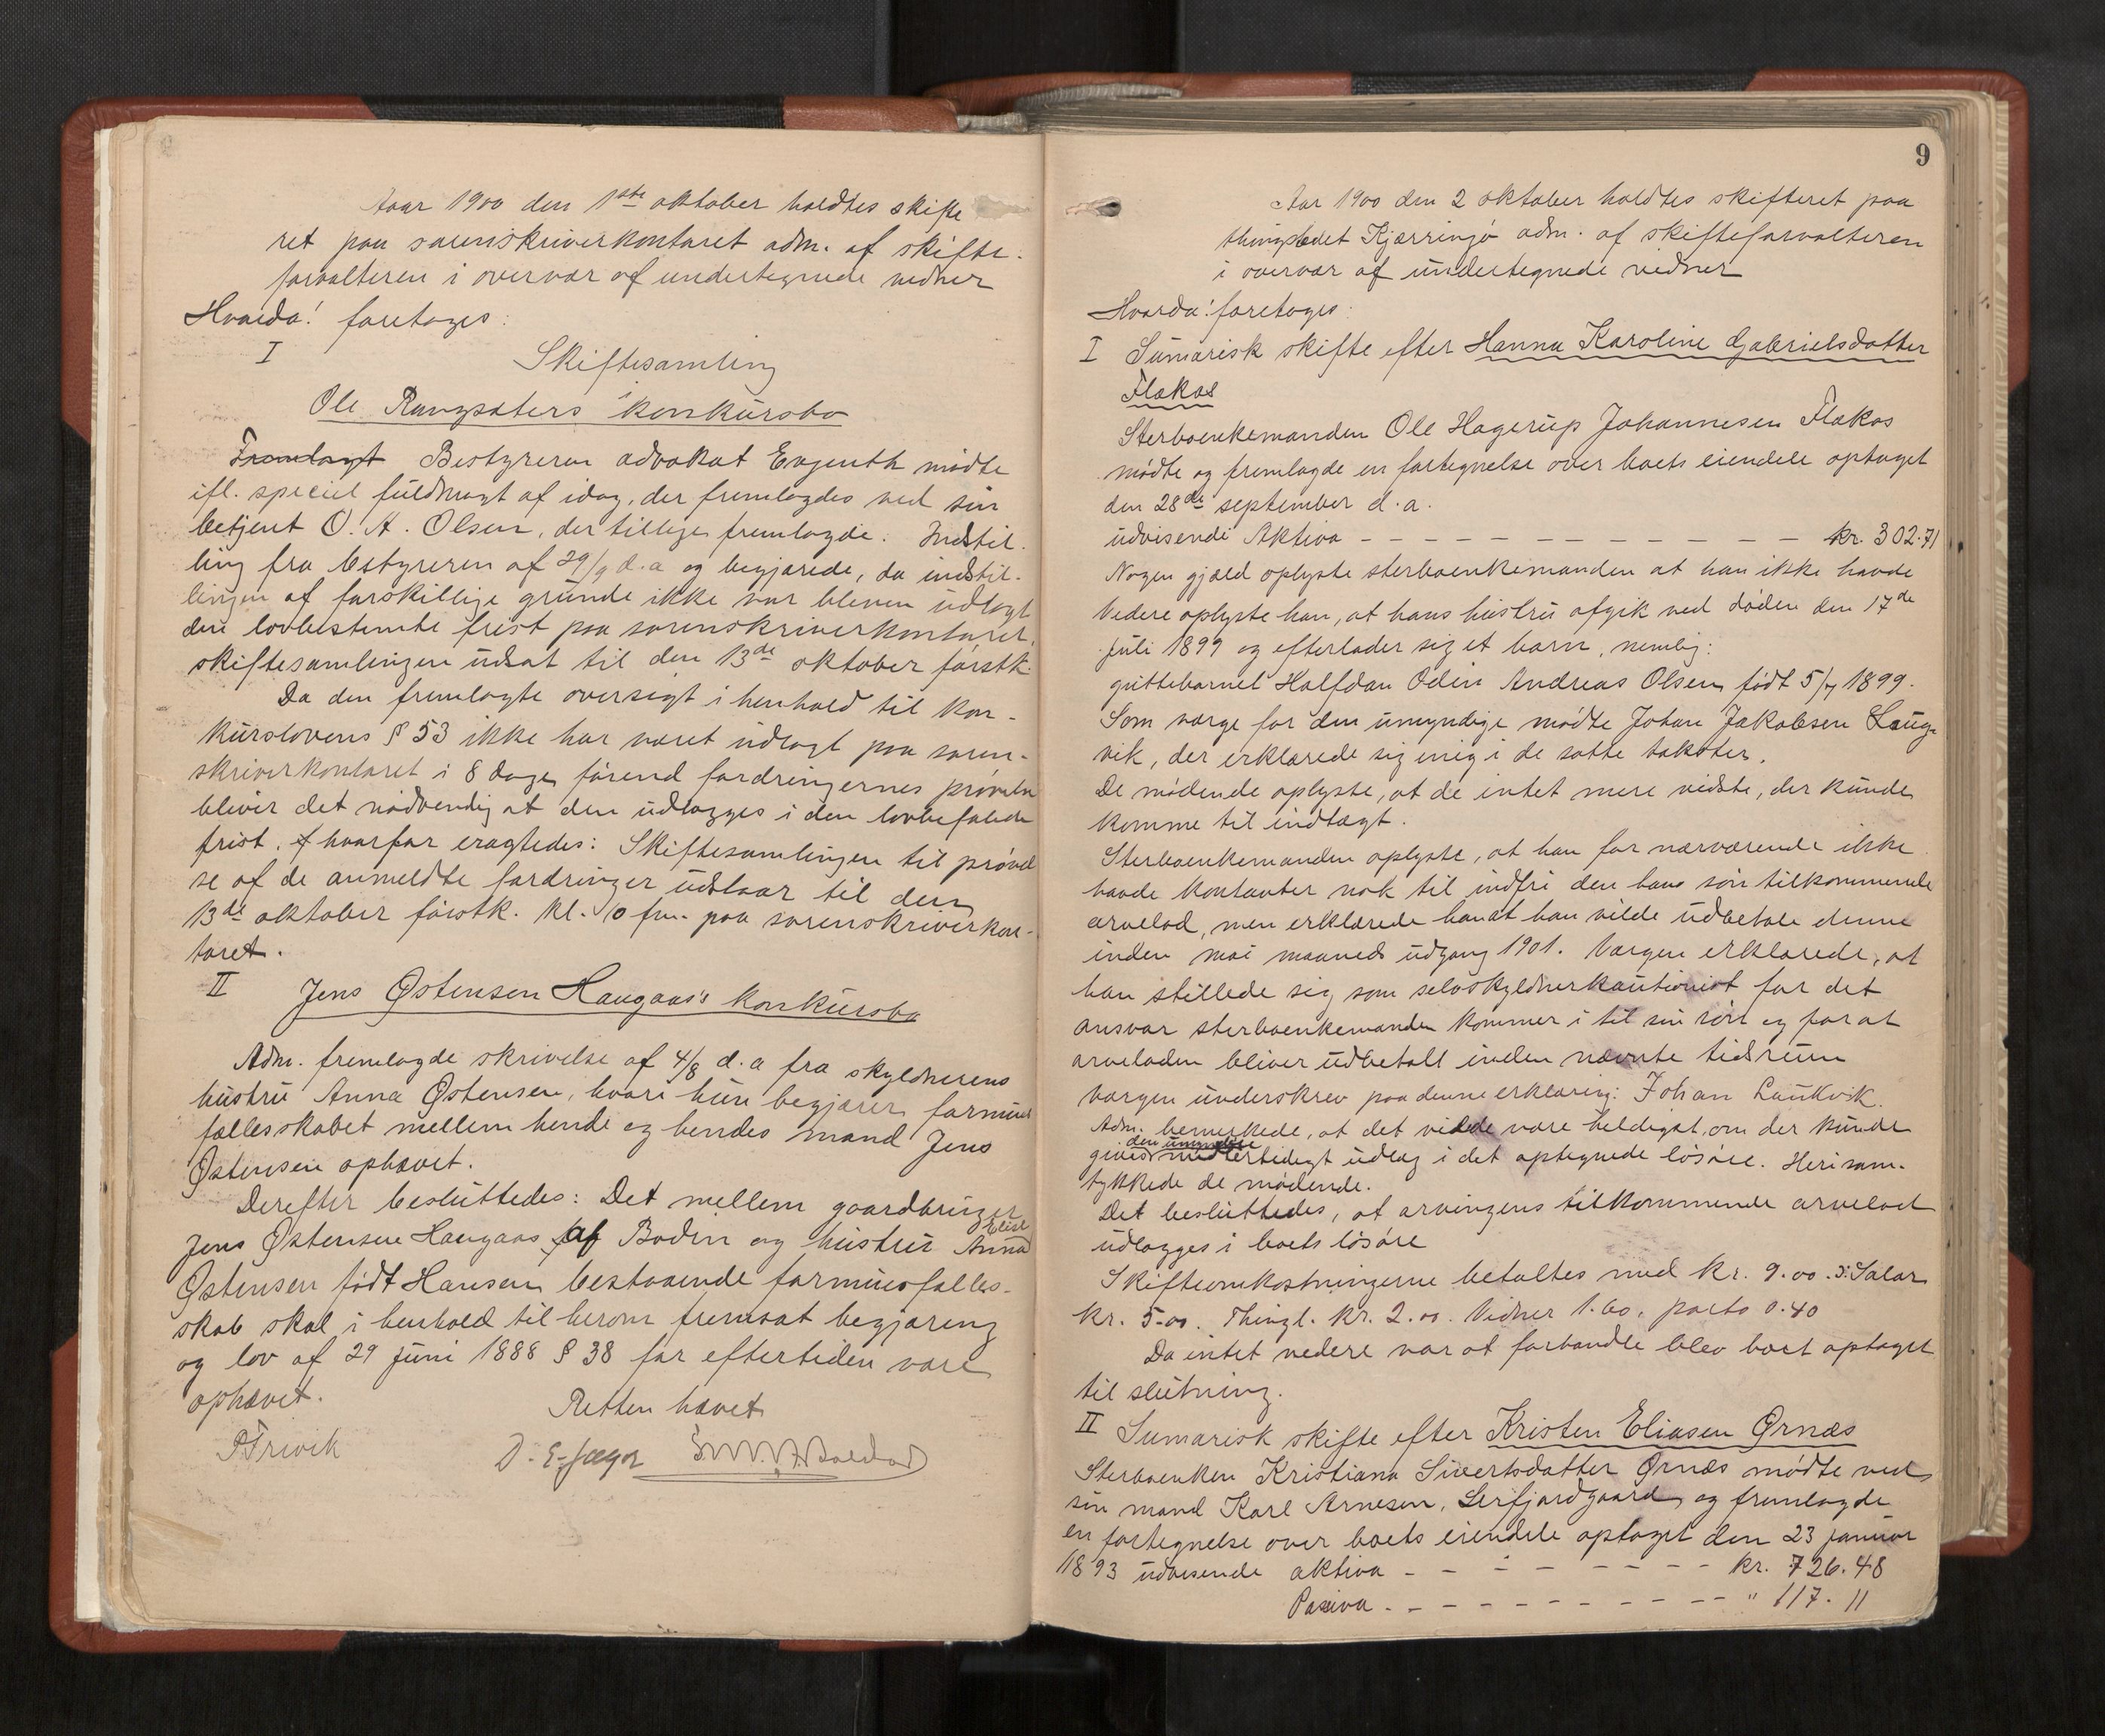 Aar 1900 den 1ste oktober holdtes skifte
ret paa sorenskriverkontoret adm. af skifte-
forvalteren i overvær af undertegnede vidner
Hvorda! foretages:
I Skiftesamling
i
Ole Rangsæters konkursbo
Fremlagt Bestyreren advokat Evjenth mødte
ifl. speciel fuldmagt af idag, der fremlagdes ved sin
betjent O. A. Olsen, der tillige fremlagde: Indstil-
ling fra bestyreren af 29/9 d. a og begjærede, da indstil-
lingen af forskillige grunde ikke var bleven udlagt
den lovbestemte frist paa sorenskriverkontoret,
skiftesamlingen udsat til den 13de oktober førstk.
Da den fremlagte oversigt i henhold til kon-
kurslovens § 53 ikke har været udlagt paa soren-
skriverkontoret i 8 dage førend fordringernes prøvelse
bliver det nødvendig at den udlægges i den lovbefalede
frist, hvorfor eragtedes: Skiftesamlingen til prøvel
se af de anmeldte fordringer udstaar til den
13de oktober førstk. kl. 10 fm. paa sorenskriverkon-
toret.
II Jens Østensen Haugaas's konkursbo
Adm. fremlagde skrivelse af 4/8 d. a fra skyldnerens
hustru Anna Østensen, hvori hun begjærer formues
fællesskabet mellem hende og hendes mand Jens
Østensen ophævet.
Derefter besluttedes: Det mellem gaardbruger
Jens Østensen Haugaas af Bodin og hustru Anna Elise
Østensen født Hansen bestaaende formuesfælles-
skab skal i henhold til herom fremsat begjæring
og lov af 29 juni 1888 § 38 for eftertiden være
ophævet.
Retten hævet
P Trivik D. E. Jæger
9
Aar 1900 den 2 oktober holdtes skifteret paa
thingstedet Kjærringø adm. af skifteforvalteren
i overvær af undertegnede vidner
Hvorda! foretages:
I Sumarisk skifte efter Hanna Karoline Gabrielsdatter
Flakas
Sterboenkemanden Ole Hagerup Johannesen Flakas
mødte og fremlagde en fortegnelse over boets eiendele optaget
den 28de september d. a.
udvisende Aktiva - - - - - - - - - - - - kr. 302.71
Nogen gjæld oplyste sterboenkemanden at han ikke havde
Videre oplyste han, at hans hustru afgik ved døden den 17de
juli 1899 og efterlader sig et barn, nemlig:
guttebarnet Halfdan Odin Andreas Olsen, født 5/7 1899.
Som værge for den umyndige mødte Johan Jakobsen Laug-
vik, der erklærede sig enig i de satte takster.
De mødende oplyste, at de intet mere vidste, der kunde
komme til indtægt.
Sterboenkemanden oplyste, at han for nærværende ikke
havde kontanter nok til indfri den hans søn tilkommende
arvelod, men erklærede han at han vilde udbetale denne
inden mai maaneds udgang 1901. Værgen erklærede, at
han stillede sig som selvskyldnerkautionist for det
ansvar sterboenkemanden kommer i til sin søn og for at
arvelodden bliver udbetalt inden nævnte tidsrum
Værgen underskrev paa denne erklæring: Johan Laukvik.
Adm. bemærkede, at det vilde være heldigst, om der kunde
gives den umyndige udlæg i det optegnede løsøre. Heri sam-
tykkede de mødende.
Det besluttedes, at arvingens tilkommende arvelod
udlægges i boets løsøre
Skifteomkostningerne betaltes med kr. 9.00. ɔ: Salær
kr. 5.00. Thingl. kr. 2.00. Vidner 1.60, porto 0.40
Da intet videre var at forhandle blev boet optaget
til slutning.
II Sumarisk skifte efter Kristen Eliasen Ørnæs
Sterboenken Kristiana Sivertsdatter Ørnæs mødte ved
sin mand Karl Arnesen, Leirfjordgaard, og fremlagde
en fortegnelse over boets eiendele optaget den 23 januar
1893 udvisende aktiva - - - - - - - - kr. 726.48
Pasiva - - - - - - - - - - - - " 117.11